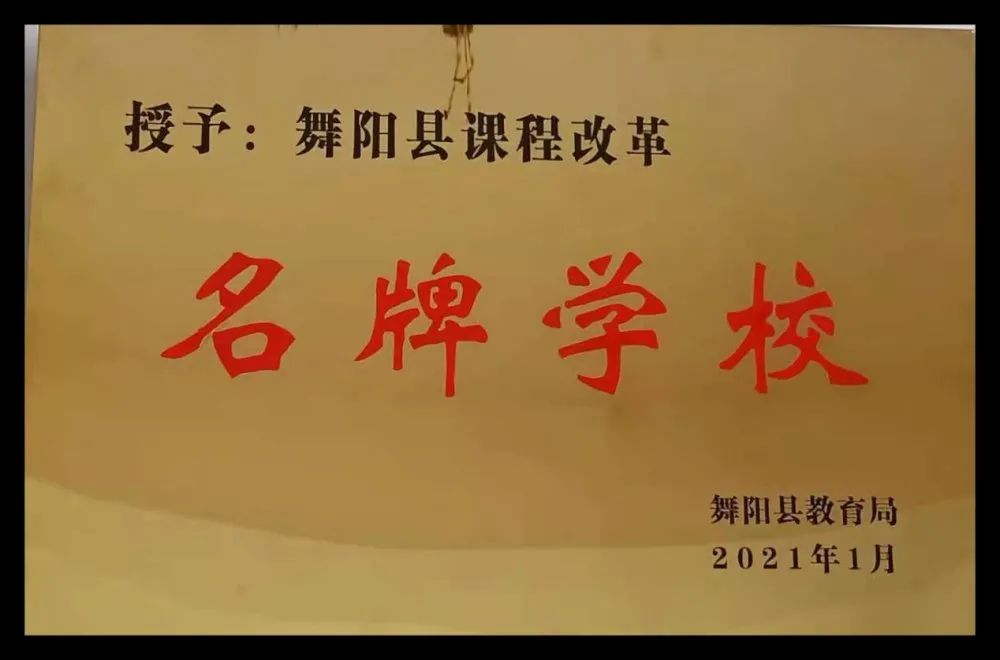 授予：舞阳县课程改革
名牌学校
舞阳县教育局
2021年1月